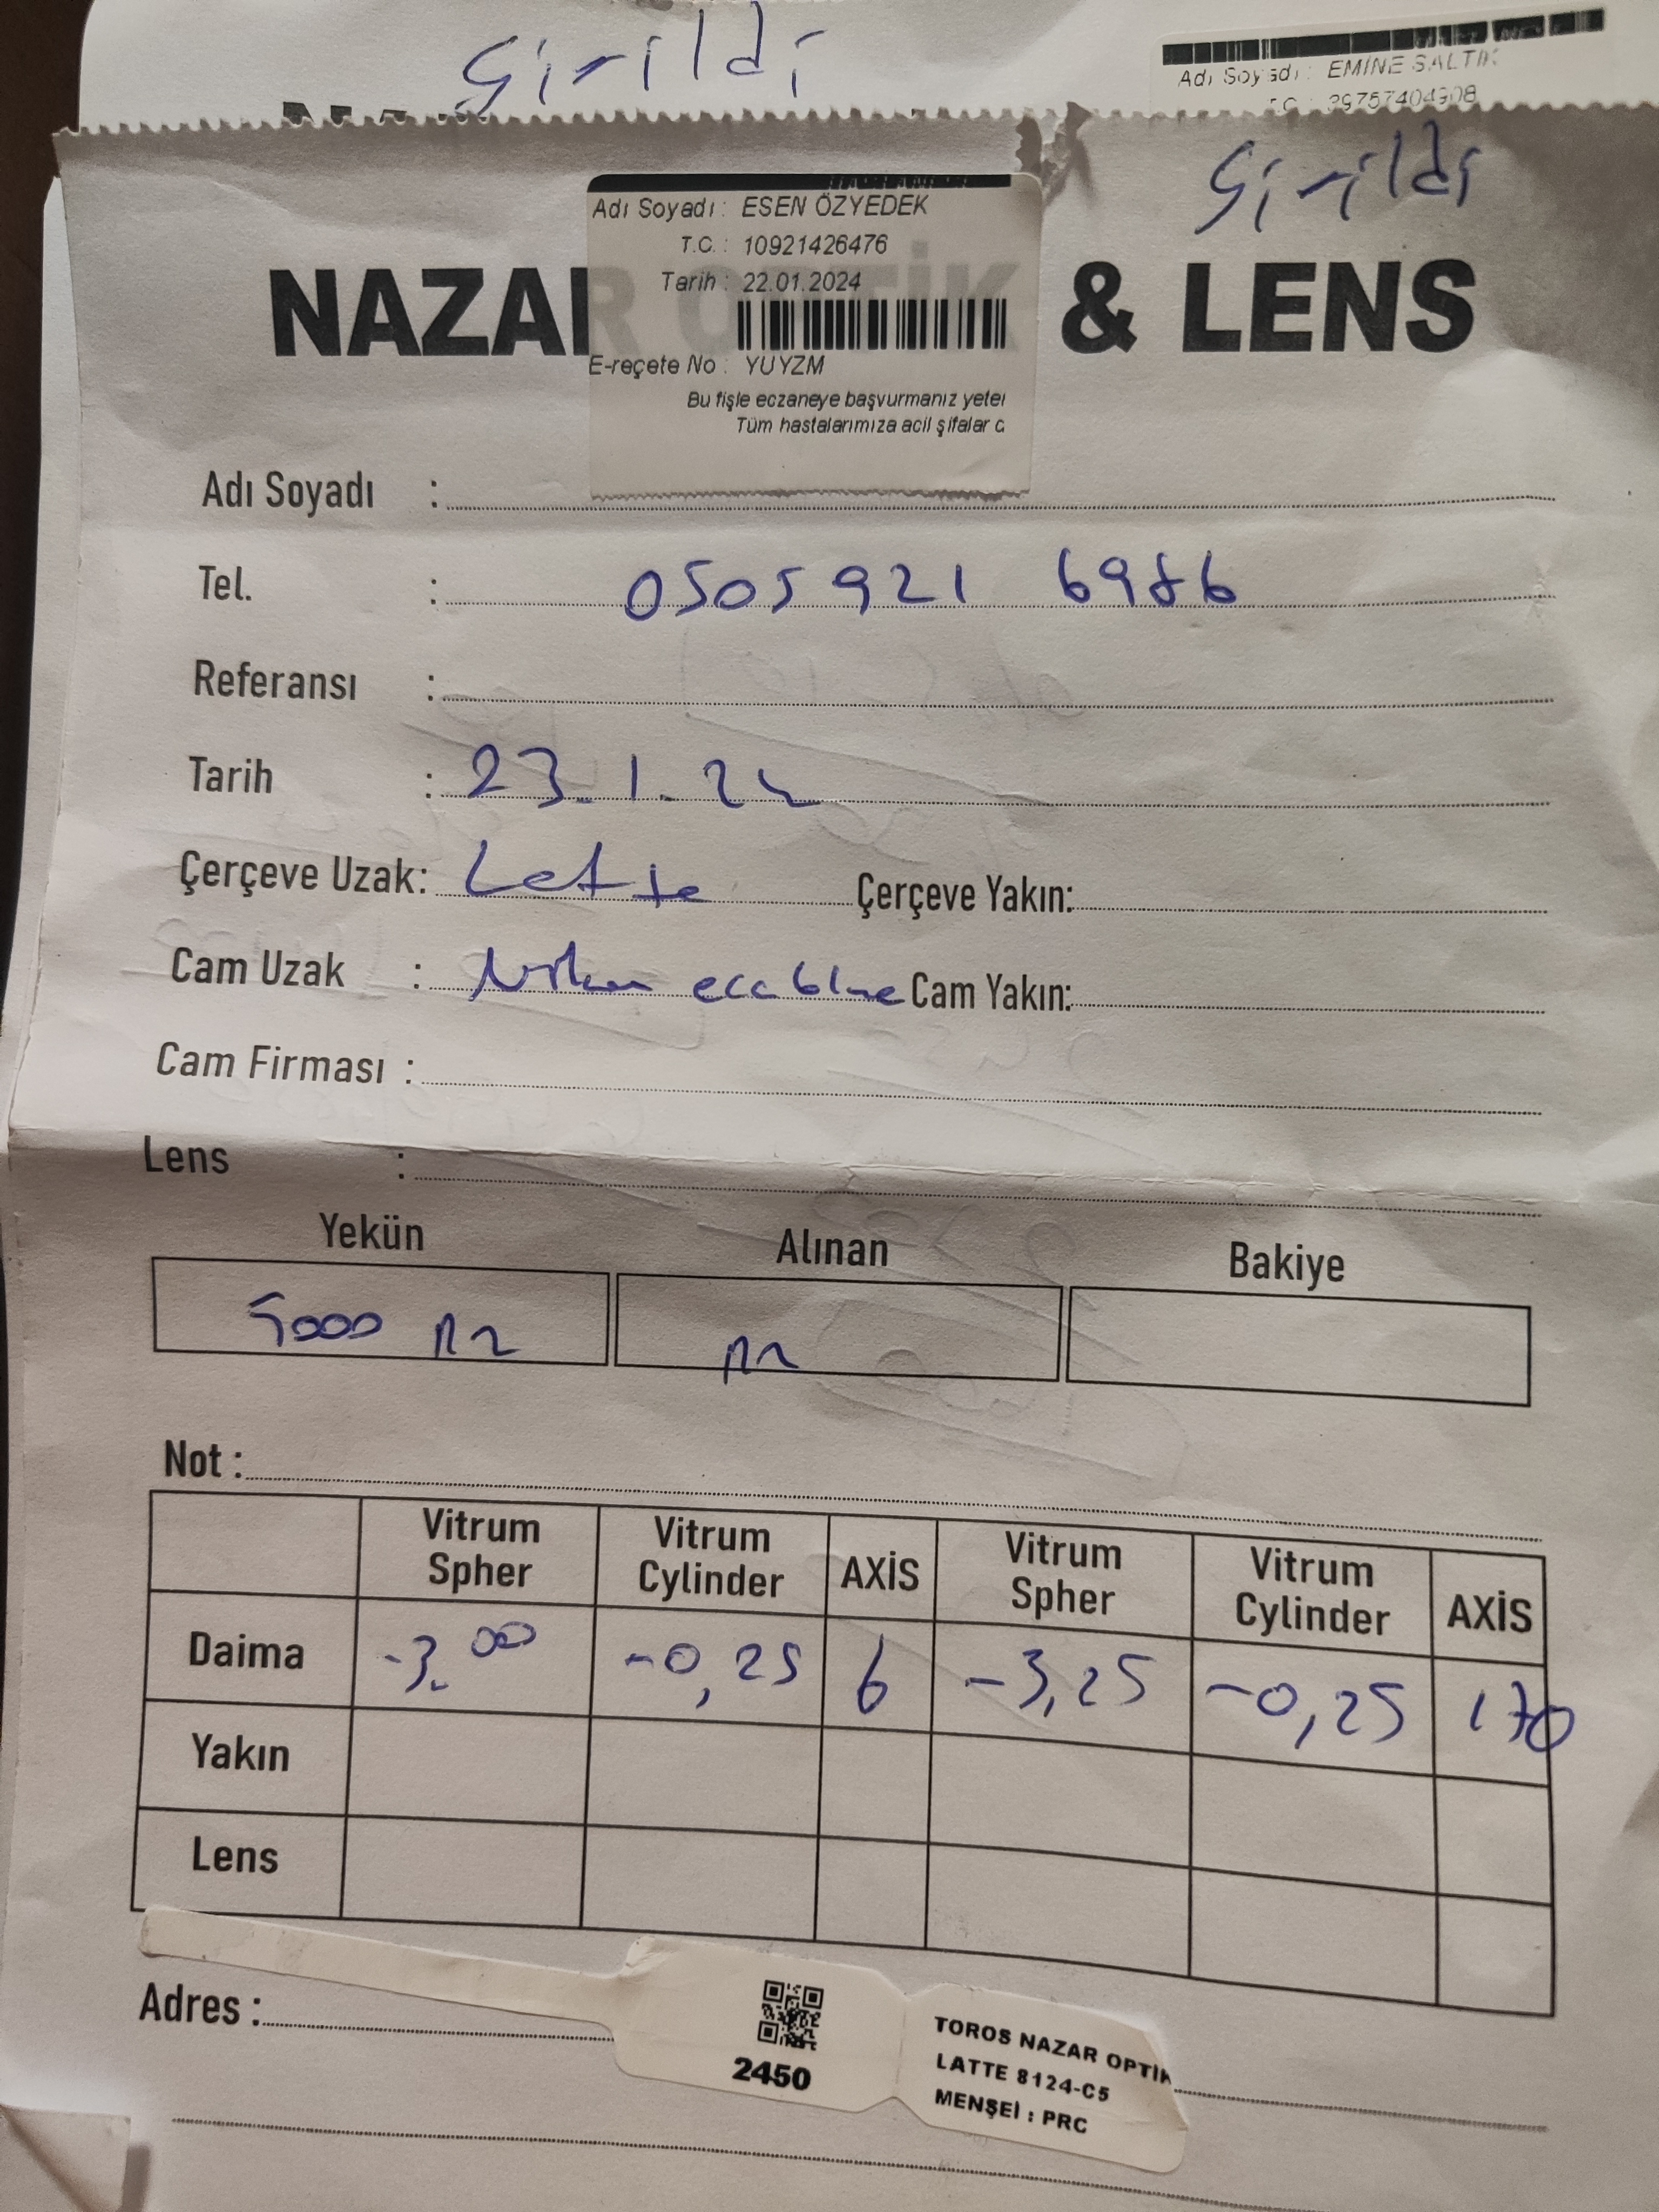 Girildi
Adı Soyadı : EMİNE SALTIK
T.C. : 39757404908
Girildi
Adı Soyadı : ESEN ÖZYEDEK
T.C. : 10921426476
Tarih : 22.01.2024
E-reçete No : YUYZM
Bu fişle eczaneye başvurmanız yeter
Tüm hastalarımıza acil şifalar d
NAZAR OPTİK & LENS
Adı Soyadı :
Tel. : 0505 921 6986
Referansı :
Tarih : 23.1.24
Çerçeve Uzak: Latte Çerçeve Yakın:
Cam Uzak : blue Cam Yakın:
Cam Firması :
Lens :
Yekün Alınan Bakiye
5000
Not :
Vitrum Spher Vitrum Cylinder AXİS Vitrum Spher Vitrum Cylinder AXİS
Daima -3.00 -0,25 6 -3,25 -0,25 170
Yakın
Lens
Adres :
2450
TOROS NAZAR OPTİK
LATTE 8124-C5
MENŞEİ : PRC